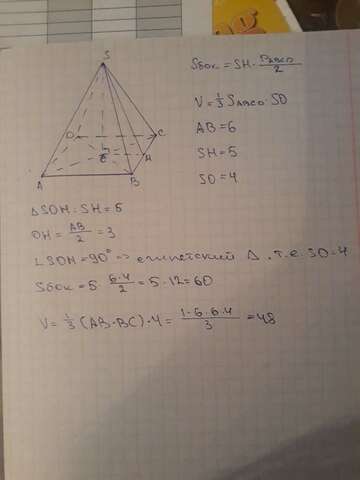 S
D
C
O
H
A
B
Sбок = SH · Pавсд/2
V = 1/3 Sавсд · SO
AB = 6
SH = 5
SO = 4
△SOH: SH = 5
OH = AB/2 = 3
∠SOH = 90° => египетский △, т.е. SO = 4
Sбок = 5 · 6·4/2 = 5 · 12 = 60
V = 1/3 (AB · BC) · 4 = 1·6·6·4/3 = 48